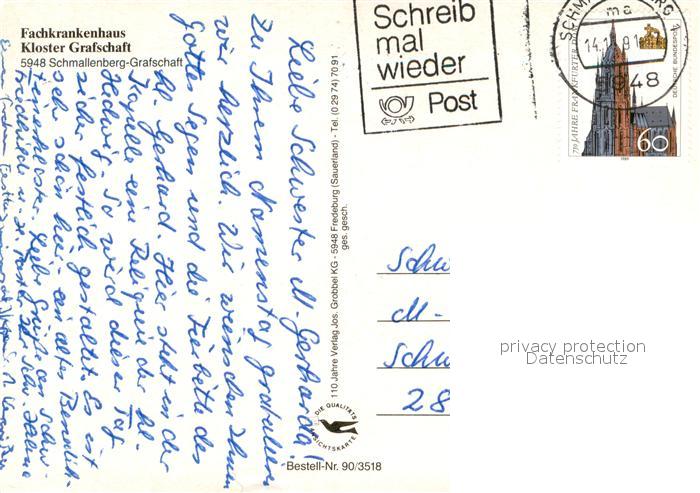 Fachkrankenhaus
Kloster Grafschaft
5948 Schmallenberg-Grafschaft
Liebe Schwester M. Gerharda!
Zu Ihrem Namenstag gratulieren
wir herzlich. Wir wünschen Ihnen
Gottes Segen und die Fürbitte des
hl. Gerhard. Hier steht in der
Kapelle eine Reliquie der hl.
Hedwig. So wird dieser Tag
sicher festlich gestaltet. Es ist
sehr schön hier, ein altes Benedik-
Liebe Grüße an Schw.
110 Jahre Verlag Jos. Grobbel KG - 5948 Fredeburg (Sauerland) - Tel. (0 29 74) 70 91
ges. gesch.
DIE QUALITÄTS
ANSICHTSKARTE
Bestell-Nr. 90/3518
Schreib
mal
wieder
Post
SCHMALLENBERG
ma
5948
DEUTSCHE BUNDESPOST
750 JAHRE FRANKFURTER
60
1989
Schw
M-
Schw
28
privacy protection
Datenschutz